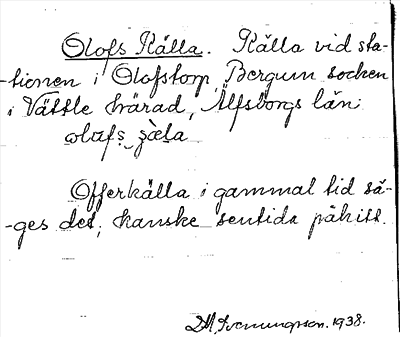 Olofs Källa. Källa vid sta-
-tionen i Olofstorp, Bergum socken
i Vättle härad, Älfsborgs län:
Offerkälla i gammal tid sä-
-ges det, kanske sentida påhitt.
1938.